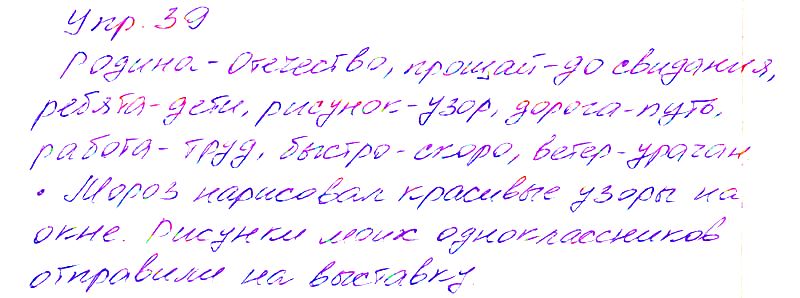 Упр. 39
Родина - Отечество, прощай - до свидания,
ребята - дети, рисунок - узор, дорога - путь,
работа - труд, быстро - скоро, ветер - ураган
• Мороз нарисовал красивые узоры на
окне. Рисунки моих одноклассников
отправили на выставку.